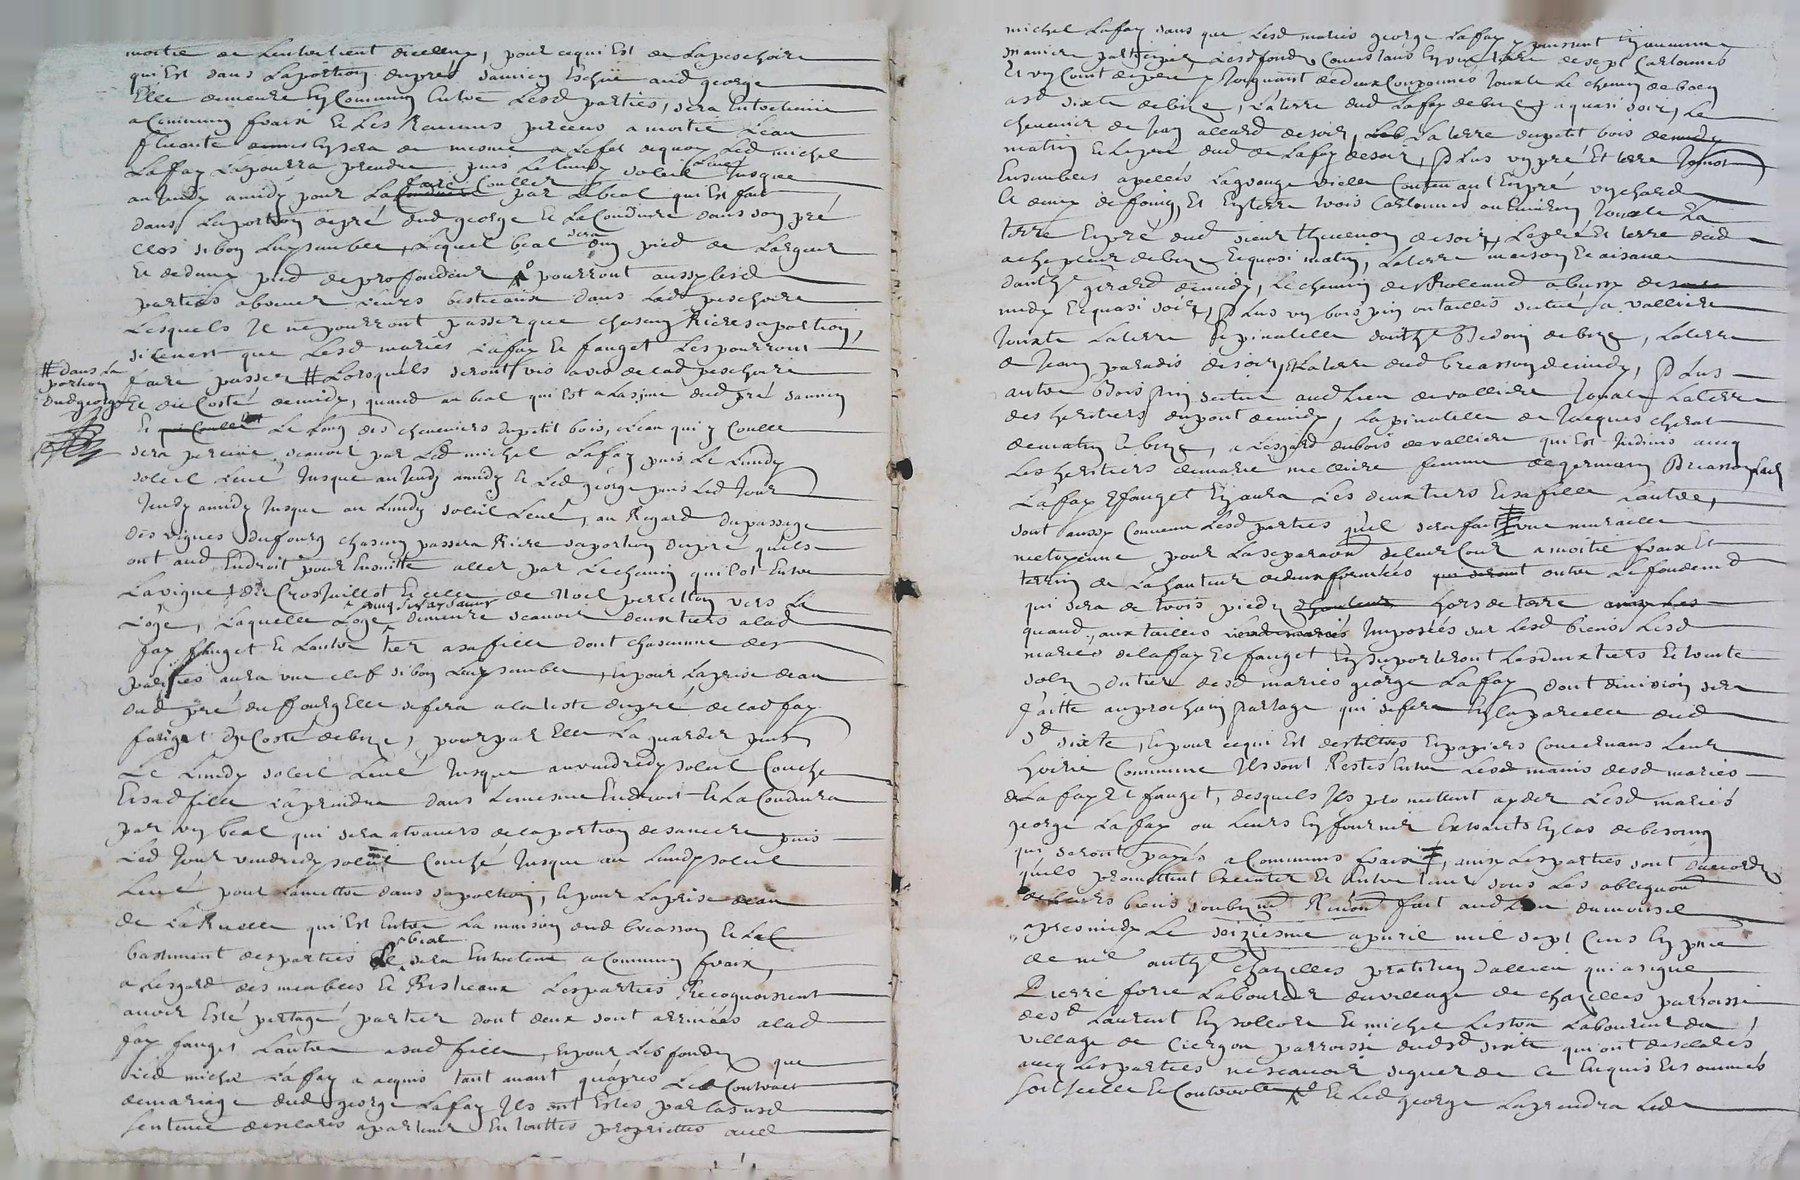 moitie de Lentretient dicelluy, pour cequi Est de Lapeschoire
qui Est dans Laportion dupré aud george
Elle demeure En Commung Entre Lesd parties, sera Entretenue
a Commung fraix Et Les Revenus perceus a moitie Leau
fluante Eysera de mesme a Lefet dequoy Led michel
Lafay Lapourra prendre puis Le Lundy soleil Levé Jusque
au Jeudy amidy pour La faire Couller par Lebeal qui Est fait
dans Laportion dupré dud george Et La Conduire dans son pré
Clos sibon Luy semble, Lequel beal sera dun pied de Largeur
Et dedemy pied deprofondeur pourront aussy Lesd
parties abrever Leurs bestieaux dans Lad peschoire
Lesquels Ils nepourront passer que chascun Riere saportion,
sicenest que Lesd mariés Lafay Et fauget Les pourront
faire passer # Lorsquels seront vis avis delad peschoire
# dans La
portion
dud george
Et du Costé demidy, quand au beal qui Est a Lasime dud pré
Et Le Long des cheneviers dupetit bois, Leau qui y Coulle
sera perceue scavoir par Led michel Lafay puis Le Lundy
soleil Levé Jusque au Jeudy amidy Et Led george puis Led Jour
Jeudy amidy Jusque au Lundy soleil Levé, au Regard dupassage
des vignes dufourg chascun passera Riere saportion dupré quils
ont aud Endroit pour Ensuitte aller par Lechemin qui Est Entre
Lavigne de Crosfuillot Et celle de Noel perretton vers La
Loge, Laquelle Loge demeure scavoir deux tiers alad
fay fauget Et Lautre tier asa fille dont chascune des
parties aura une clef sibon Leur semble, Et pour Laprise deau
dud pré du ffourg Elle sefera a la teste dupré de lad fay
fauget du Costé debize, pour par Elle La guarder puis
Le Lundy soleil Levé Jusque au vendredy soleil Couché
Et sad fille Laprendra dans Lemesme Endroit Et La Conduira
par un beal qui sera atravers de laportion de samere puis
Led Jour vendredy soleil Couché Jusque au Lundy soleil
Levé pour Lamettre dans saportion, Et pour Laprise deau
de La Ruelle qui Est Entre La maison dud breasson Et Le
bastiment desparties Le beal sera Entretenu a Commung fraix,
a Lesgard des meubles Et Bestieaux Les parties Recognoissent
avoir Esté partagé par tier dont deux sont arrivées a lad
fay fauget Lautre asad fille, Et pour Les fonds que
Led michel Lafay a acquis tant avant quapres Led Contract
demariage dud george Lafay Ils ont Estés par lasusd
sentence desclarés apartenir En touttes proprietes aud
michel Lafay sans que Lesd mariés george Lafay y puissent En aucune
maniere participer Lesd fonds Consistans En une terre de sept Cartonnés
Et un Couvert depierre Joignant dedeux Couponnes Jouxte Le chemin deboen
a sixte debize, Laterre dud Lafay debize a quasi soir, Le
chenevier de Jean allard desoir, La terre dupetit bois
matin Et Lepré dud de Lafay desoir, Plus un pré Et terre Joints
Ensembles apellés Lagrange vielle Contenant En pré un chard
Et demy defoing, Et En terre trois Cartonnes ou Environ Jouxte La
terre Et pré dud sieur thevenon desoir, Lepré Et terre dud
achepteur debize Et quasi matin, Laterre maison Et aisance
danth. girard demidy, Le chemin de Rolleaud a bussy de
midy Et quasi soir, Plus un bois pin En taillis situé a valliere
Jouxte Laterre Et pinatelle danth. Bedoin debize, Laterre
de Jean paradis desoir, Et Laterre dud breasson demidy, Plus
autre Bois Pin situé aud Lieu devalliere Jouxte Laterre
des heritiers dupont demidy, La pinatelle de Jacques cherat
dematin Et bize, a Lesgard dubois devalliere qui Est Indivis avec
Les heritiers demarie melliere femme degermain Breasson Lad
Lafay Et fauget En aura Les deux tiers Et sa fille Lautre,
sont aussy Convenu Lesd parties quil sera fait une muraille
metoyenne pour La separaon de leur Cour a moitié fraix Et
terrin de La hauteur de deux formées outre Le fondem.
qui sera de trois pieds hors de terre
quand aux tailles Imposées sur Lesd biens Lesd
mariés de lafay Et fauget En suporteront Lesdeux tiers Et trente
sols du tier Lesd mariés george Lafay dont division sera
faitte auprochain Partage qui sefera En la parcelle dud
St sixte, Et pour cequi Est destiltres Et papiers Concernans Leur
hoirie Commune Ils sont Restés Entre Lesd mains desd mariés
de Lafay Et fauget, desquels Ils promettent ayder Lesd mariés
george Lafay ou Leurs En fournir Extraits En Cas debesoing
qui seront payés a Communs fraix, ainsy Les parties sont d'accord,
quils promettent Executer Et Entretenir sous Les obligaons
de Leurs biens soubzon Renon fait aud Lieu dumousel
apres midy Le seiziesme apvril mil sept Cens En pnce
de me anth. chazelles praticien dallieu qui a signé,
Pierre forie Laboureur du village de chazelles parroisse
de St Laurent En sollore Et michel Leston Laboureur du
village de Ciergon parroisse dud St sixte qui ont desclarés
avec Les parties ne scavoir signer de ce Enquis Et sommés
soit scelle Et Controolle Et Led george Laprendra Led